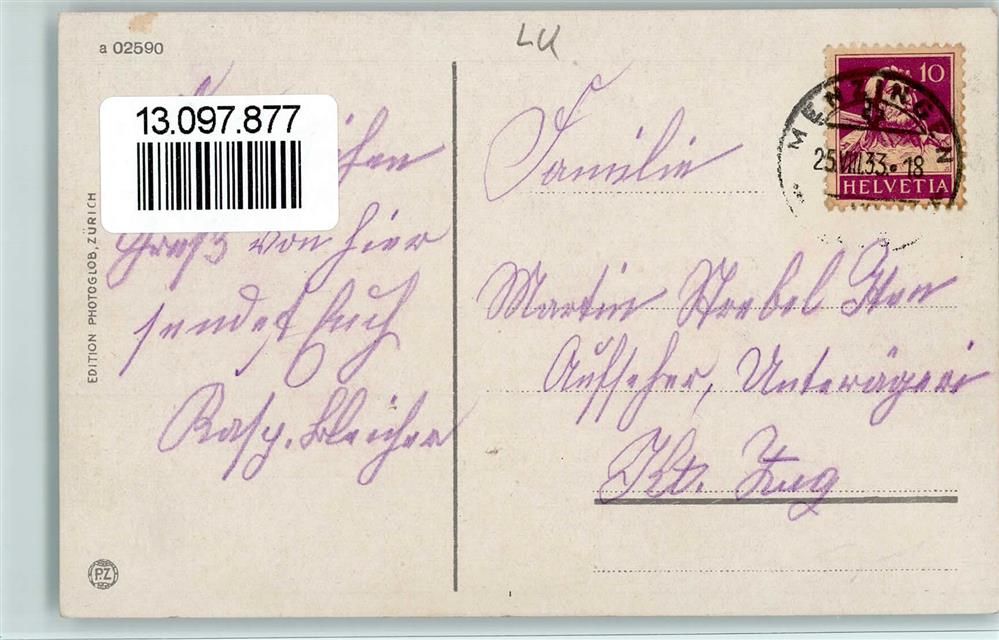 a 02590
LU
13.097.877
EDITION PHOTOGLOB, ZÜRICH
Gruß von hier
sendet Euch
Kasp. Bleicher
PZ
10
HELVETIA
MENZINGEN
25.VIII.33.18
Familie
Martin Strebel
Aufseher, Unterägeri
Kt. Zug